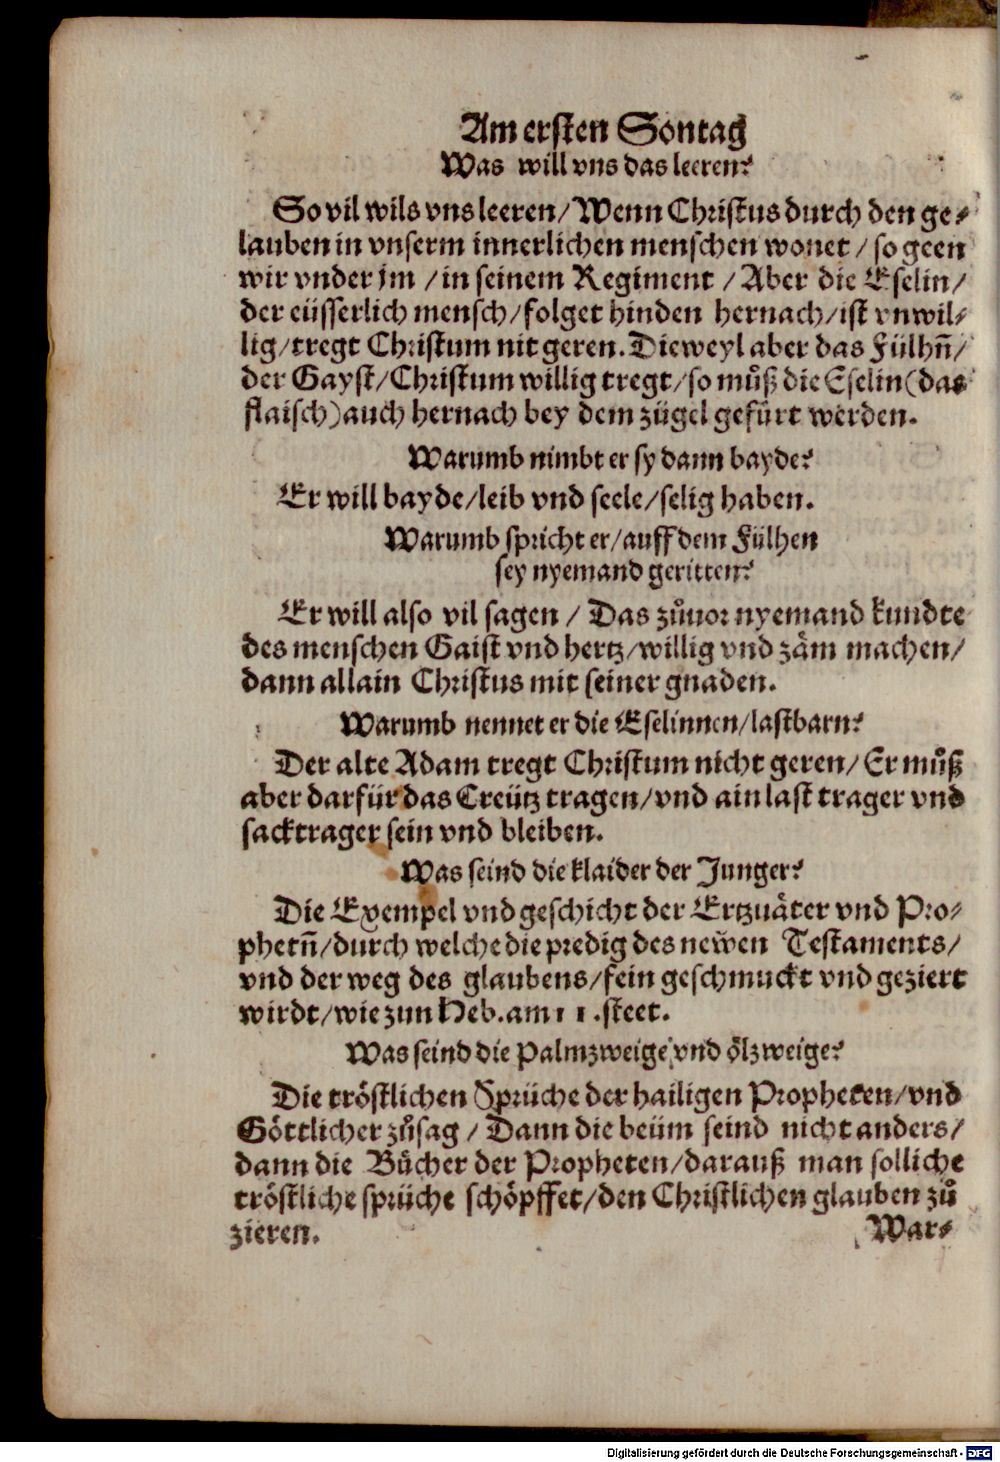 Am ersten Sontag
Was will vns das leeren?
So vil wils vns leeren/ Wenn Christus durch den ge-
lauben in vnserm innerlichen menschen wonet / so geen
wir vnder jm / in seinem Regiment / Aber die Eselin/
der eüsserlich mensch/ folget hinden hernach/ ist vnwil-
lig/ tregt Christum nit geren. Dieweyl aber das Fülhn̄/
der Gayst/ Christum willig tregt/ so můß die Eselin (das
flaisch) auch hernach bey dem zügel gefürt werden.
Warumb nimbt er sy dann bayde?
Er will bayde/ leib vnd seele/ selig haben.
Warumb spricht er/ auff dem Fülhen
sey nyemand geritten?
Er will also vil sagen / Das zůuor nyemand kundte
des menschen Gaist vnd hertz/ willig vnd zäm machen/
dann allain Christus mit seiner gnaden.
Warumb nennet er die Eselinnen/ lastbarn?
Der alte Adam tregt Christum nicht geren/ Er můß
aber darfür das Creütz tragen/ vnd ain last trager vnd
sacktrager sein vnd bleiben.
Was seind die klaider der Junger?
Die Exempel vnd geschicht der Ertzuäter vnd Pro-
phetn̄/ durch welche die predig des newen Testaments/
vnd der weg des glaubens/ fein geschmuckt vnd geziert
wirdt/ wie zun Heb. am 11. steet.
Was seind die Palmzweige vnd ölzweige?
Die tröstlichen Sprüche der hailigen Propheten/ vnd
Göttlicher zůsag / Dann die beüm seind nicht anders/
dann die Bücher der Propheten/ darauß man solliche
tröstliche sprüche schöpffet/ den Christlichen glauben zů
zieren.
War-
Digitalisierung gefördert durch die Deutsche Forschungsgemeinschaft - DFG